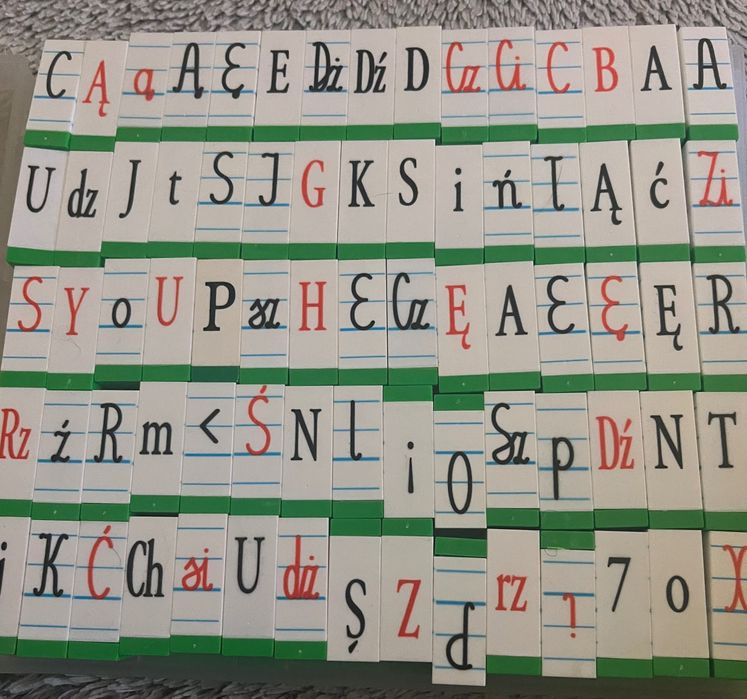 C Ą ą A Ę E Dż Dź D Cz Ci C B A A
U dz J t S J G K S i ń T Ą ć Zi
S Y o U P sz H E Cz Ę A E Ę Ę R
Rz ź R m < Ś N l ! O Sz p Dź N T
j K Ć Ch si U dż Ś Z P rz 7 o X